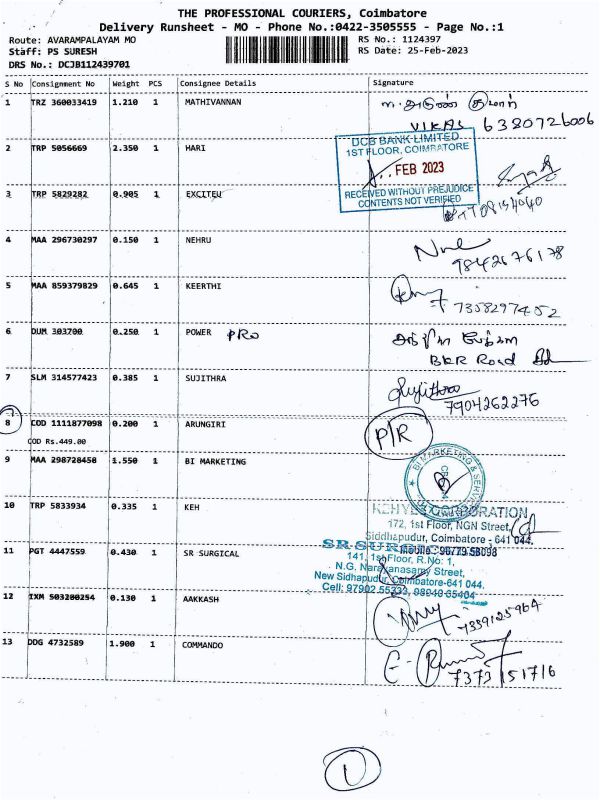 THE PROFESSIONAL COURIERS, Coimbatore
Delivery Runsheet - MO - Phone No.:0422-3505555 - Page No.:1
Route: AVARAMPALAYAM MO
RS No.: 1124397
Staff: PS SURESH
RS Date: 25-Feb-2023
DRS No.: DCJB112439701
S No Consignment No Weight PCS Consignee Details Signature
1 TRZ 360033419 1.210 1 MATHIVANNAN
VIKAS 6380726006
2 TRP 5056669 2.350 1 HARI
DCB BANK LIMITED
1ST FLOOR, COIMBATORE
FEB 2023
RECEIVED WITHOUT PREJUDICE
CONTENTS NOT VERIFIED
3 TRP 5829282 0.905 1 EXCITEU
4 MAA 296730297 0.150 1 NEHRU
9842676178
5 MAA 859379829 0.645 1 KEERTHI
7358297452
6 DUM 303700 0.250 1 POWER PRO
BKR Road
7 SLM 314577423 0.385 1 SUJITHRA
Sujithra
7904262276
8 COD 1111877098 0.200 1 ARUNGIRI
COD Rs.449.00
P/R
9 MAA 298728458 1.550 1 BI MARKETING
BI MARKETING & SERVICES
10 TRP 5833934 0.335 1 KEH
CORPORATION
172, 1st Floor, NGN Street,
Siddhapudur, Coimbatore - 641 044.
11 PGT 4447559 0.430 1 SR SURGICAL
141, 1st Floor, R.No: 1,
N.G. Narayanasamy Street,
New Sidhapudur, Coimbatore-641 044.
12 IXM 503280254 0.130 1 AAKKASH
7339125964
13 DDG 4732589 1.900 1 COMMANDO
7373151716
1